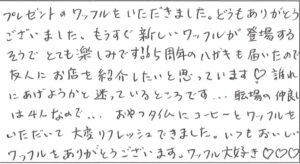 プレゼントのワッフルをいただきました。どうもありがとう
ございました。もうすぐ新しいワッフルが登場する
そうでとても楽しみです!!5周年のハガキも届いたので
友人にお店を紹介したいと思っています♡誰れ
にあげようかと迷っているところです…職場の仲良し
は4人なので… おやつタイムにコーヒーとワッフルを
いただいて大変リフレッシュできました。いつもおいしい
ワッフルをありがとうございます。ワッフル大好き♡♡♡